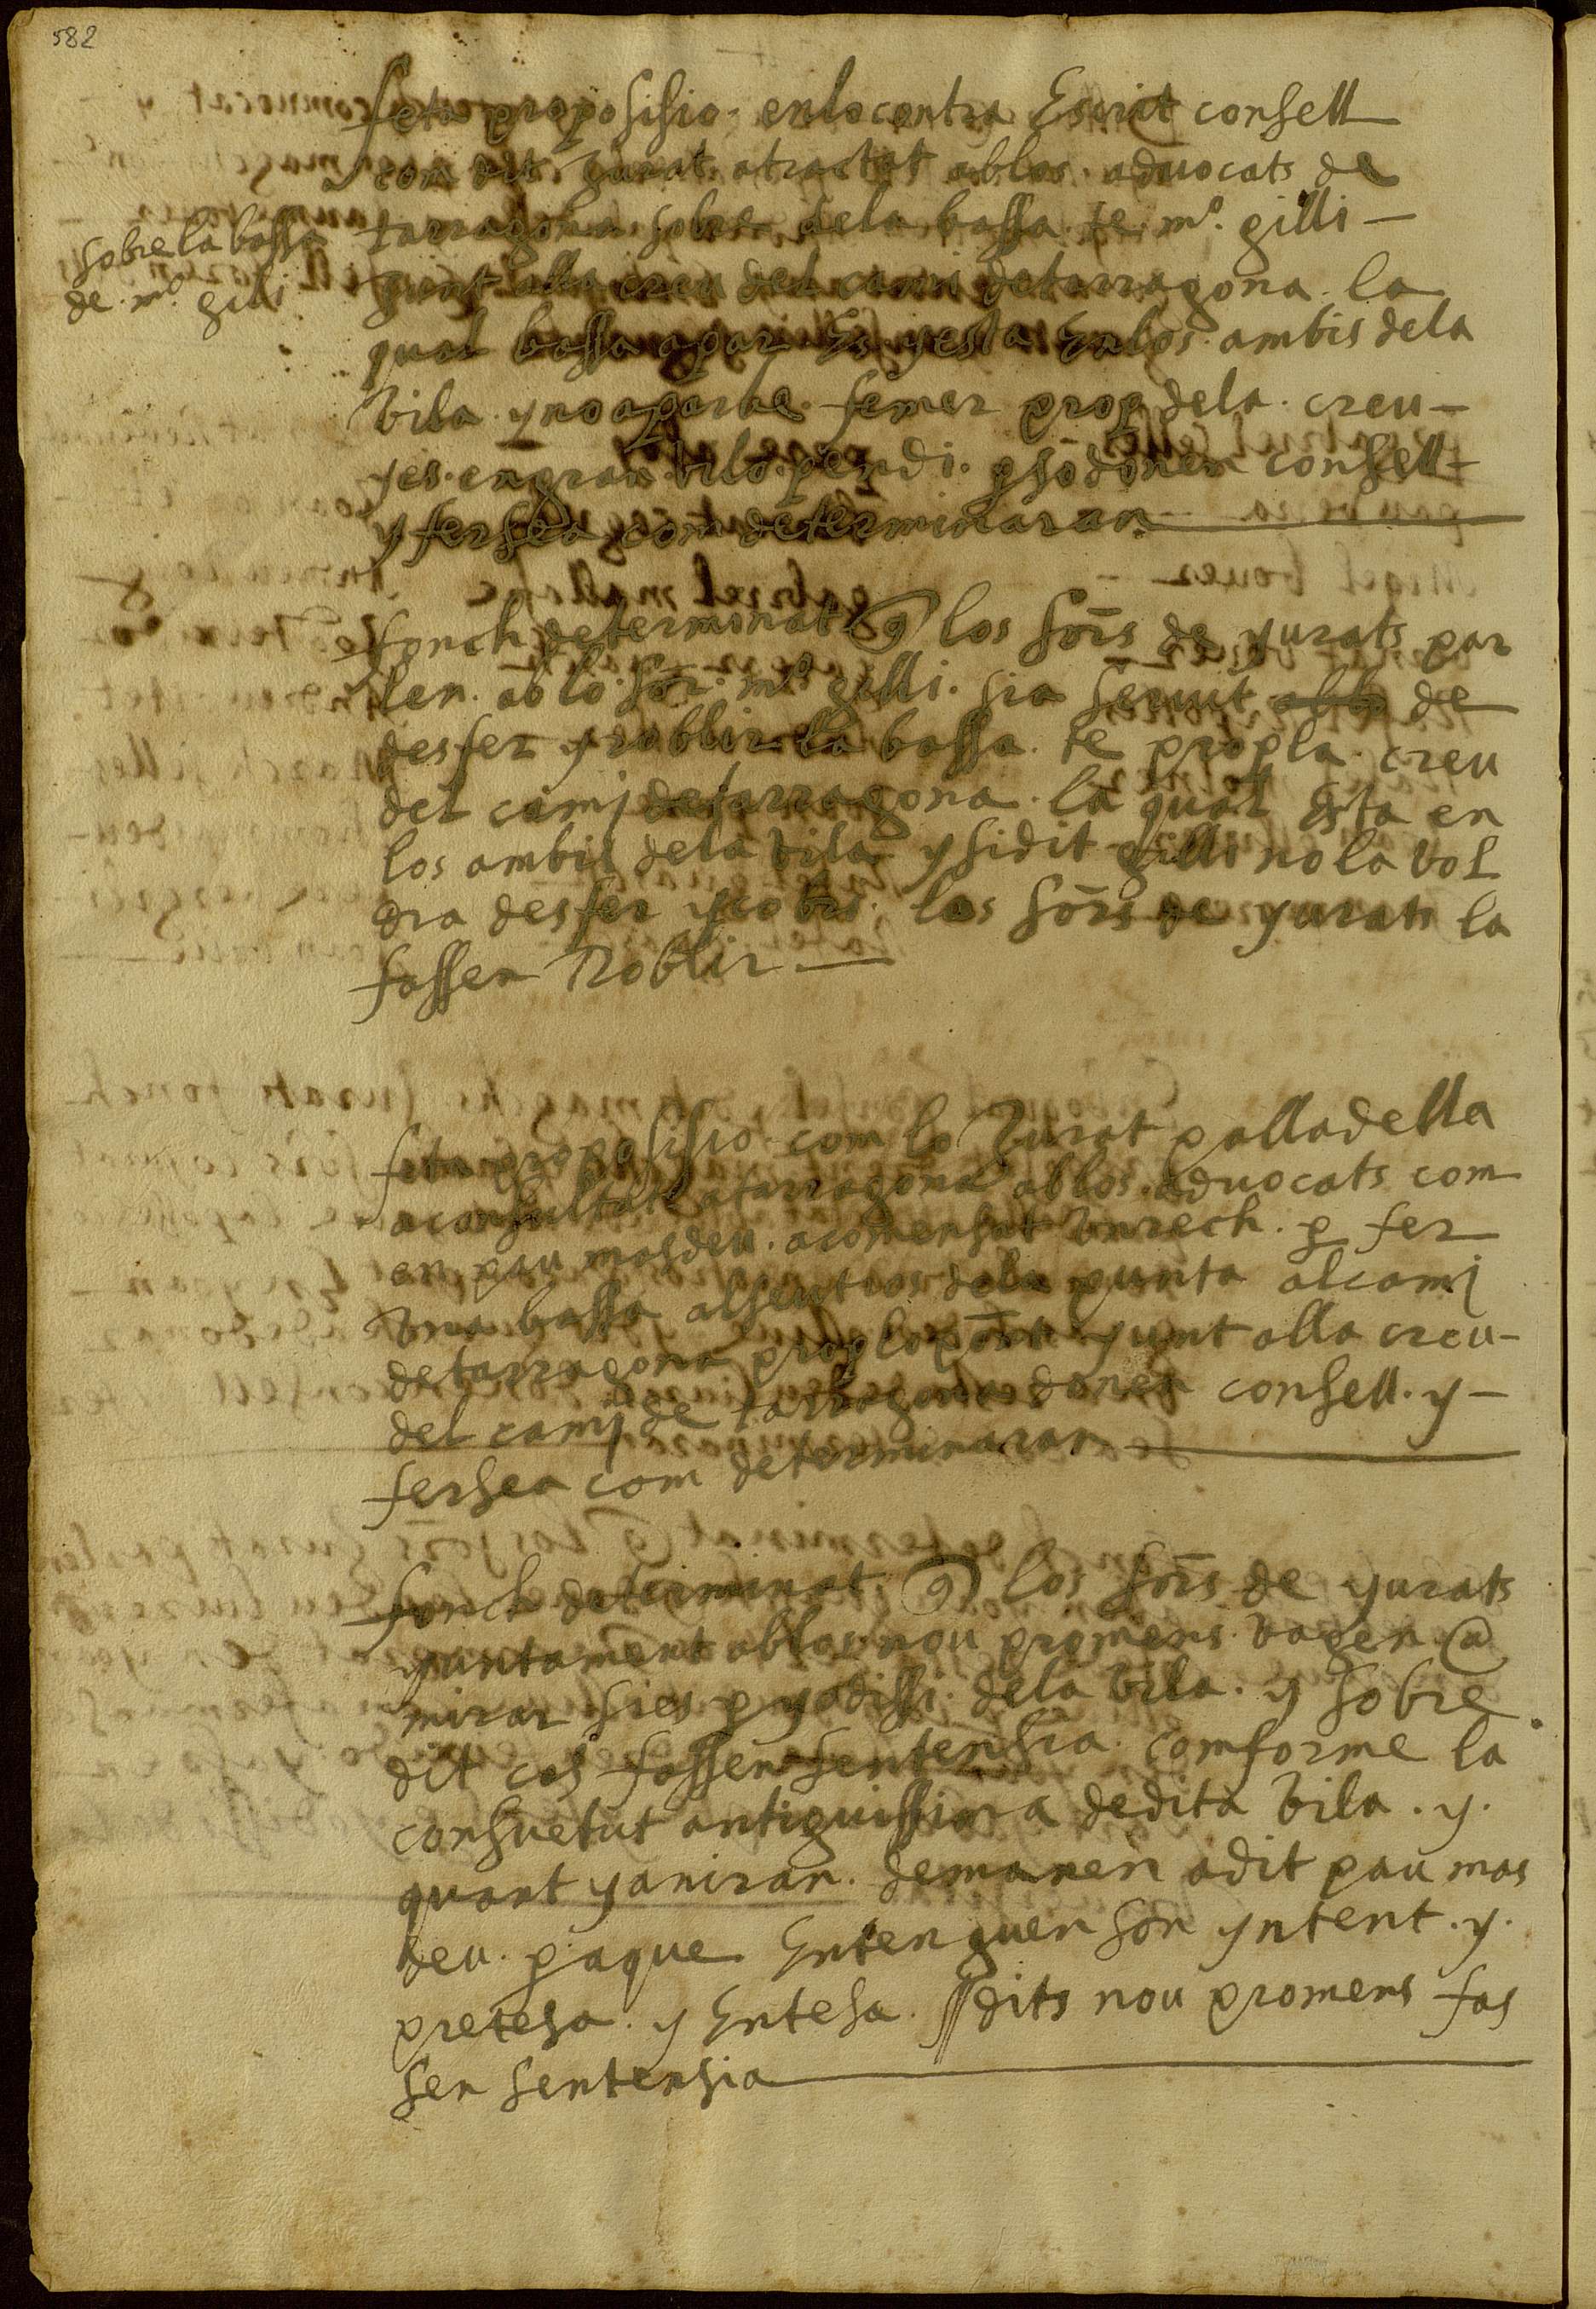 582
feta proposisio enlo contra Escrit consell
com dit Jurat atractat ablos aduocats de
tarragona sobre dela bassa te mº gilli
junt alla creu del cami detarragona la
qual bassa apar Es y esta Enlos ambis dela
vila y no aparbe femer prop dela creu
yes engran vilipendi donen consell
y fersea com determinaran
sobre la bassa
de mº gili
fonch determinat q los sors de yurats par
len ablo sor mº gilli sia seruit de
desfer y roblir la bassa te prop la creu
del camj detarragona la qual Esta en
los ambis dela vila y sidit gilli nola vol
dra desfer los sors de yurats la
fassen Roblir
feta proposisio com lo Jurat palladella
aconsultat atarragona ablos aduocats com
en pau masdeu acomensat vn rech p fer
vna bassa dela punta alcamj
detarragona prop lo pont yunt alla creu
del camj de tarragona donen consell y
fersea com determinaran
fonch determinat q los sors de yurats
yuntament ablos nou promens vagen a
mirar sies p yodissi dela vila y sobre
dit cas fassen sentensia comforme la
consuetut antiguissima dedita vila y
quant yaniran demanen adit pau mas
deu paque Entenguen son yntent y
pretesa y Entesa dits nou promens fas
sen sentensia